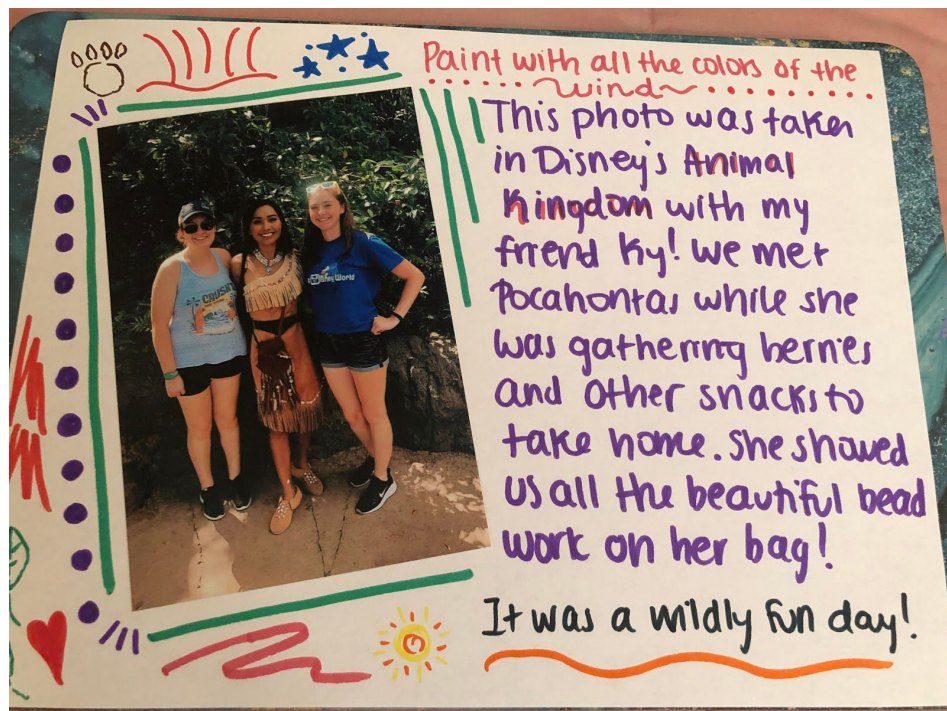 Paint with all the colors of the
wind
This photo was taken
in Disney's Animal
Kingdom with my
friend Ky! We met
Pocahontas while she
was gathering berries
and other snacks to
take home. She showed
us all the beautiful bead
work on her bag!
It was a wildly fun day!
CRUSH
Disney World